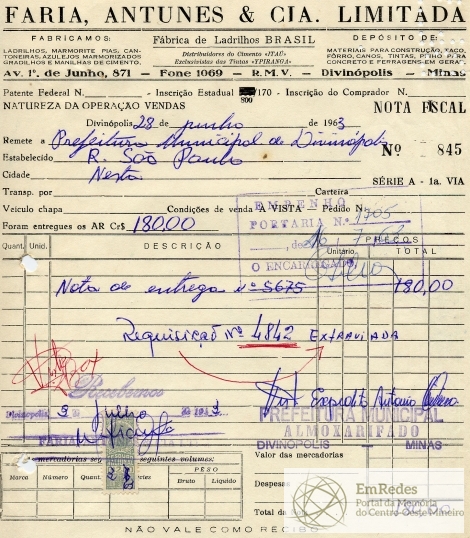 FARIA, ANTUNES & CIA. LIMITADA
FABRICAMOS:
LADRILHOS, MARMORITE PIAS, CAN-
TONEIRAS, AZULEJOS MARMORIZADOS
GRADILHOS E MANILHAS DE CIMENTO.
Fábrica de Ladrilhos BRASIL
Distribuidores do Cimento «ITAÚ»
Exclusivistas das Tintas «YPIRANGA»
DEPÓSITO DE:
MATERIAIS PARA CONSTRUÇÃO, TACO,
FÔRRO, CANOS, TINTAS,
CONCRETO E FERRAGENS EM GERAL
Av. 1º. de Junho, 871 — Fone 1069 — R.M.V. — Divinópolis — Minas
Patente Federal N. Inscrição Estadual 170 - Inscrição do Comprador N.
800
NATUREZA DA OPERAÇÃO VENDAS
NOTA FISCAL
Divinópolis, 28 de junho de 1963
Remete a Prefeitura Municipal de Divinópolis
Nº 845
Estabelecido R. São Paulo
Cidade Nesta
SÉRIE A - 1a. VIA
Transp. por Carteira
Veículo chapa Condições de venda A VISTA - Pedido N.
EMPENHO
PORTARIA N.º 1705
O ENCARREGADO
Foram entregues os AR Cr$ 180,00
Quant. Unid. DESCRIÇÃO PREÇOS
Unitário TOTAL
Nota de entrega nº 5675 180,00
Requisição Nº 4842 EXTRAVIADA
Recebemos
Divinópolis, 3 Julho
Expedito Antonio
PREFEITURA MUNICIPAL
ALMOXARIFADO
DIVINOPOLIS - MINAS
mercadorias seguintes volumes:
Marca Número Quant. PÊSO
Bruto Líquido
Valor das mercadorias
Despesa
Total da
180,00
NÃO VALE COMO RECIBO
EmRedes
Portal da Memória
do Centro-Oeste Mineiro